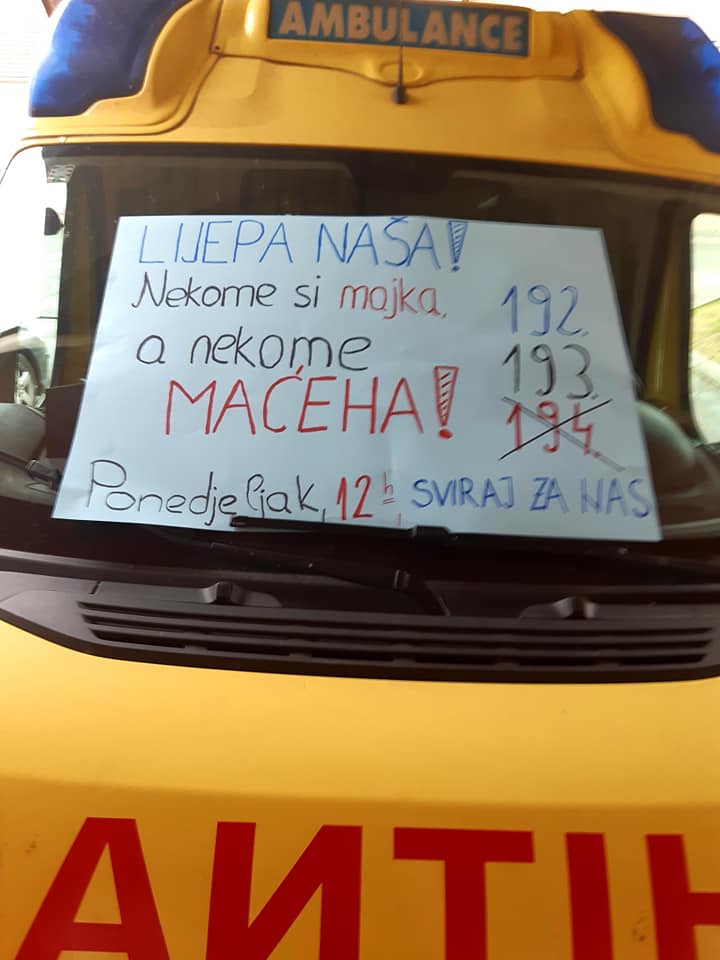 AMBULANCE
LIJEPA NAŠA!
Nekome si majka,
a nekome
MAĆEHA!
192.
193.
194.
Ponedjeljak, 12h, SVIRAJ ZA NAS